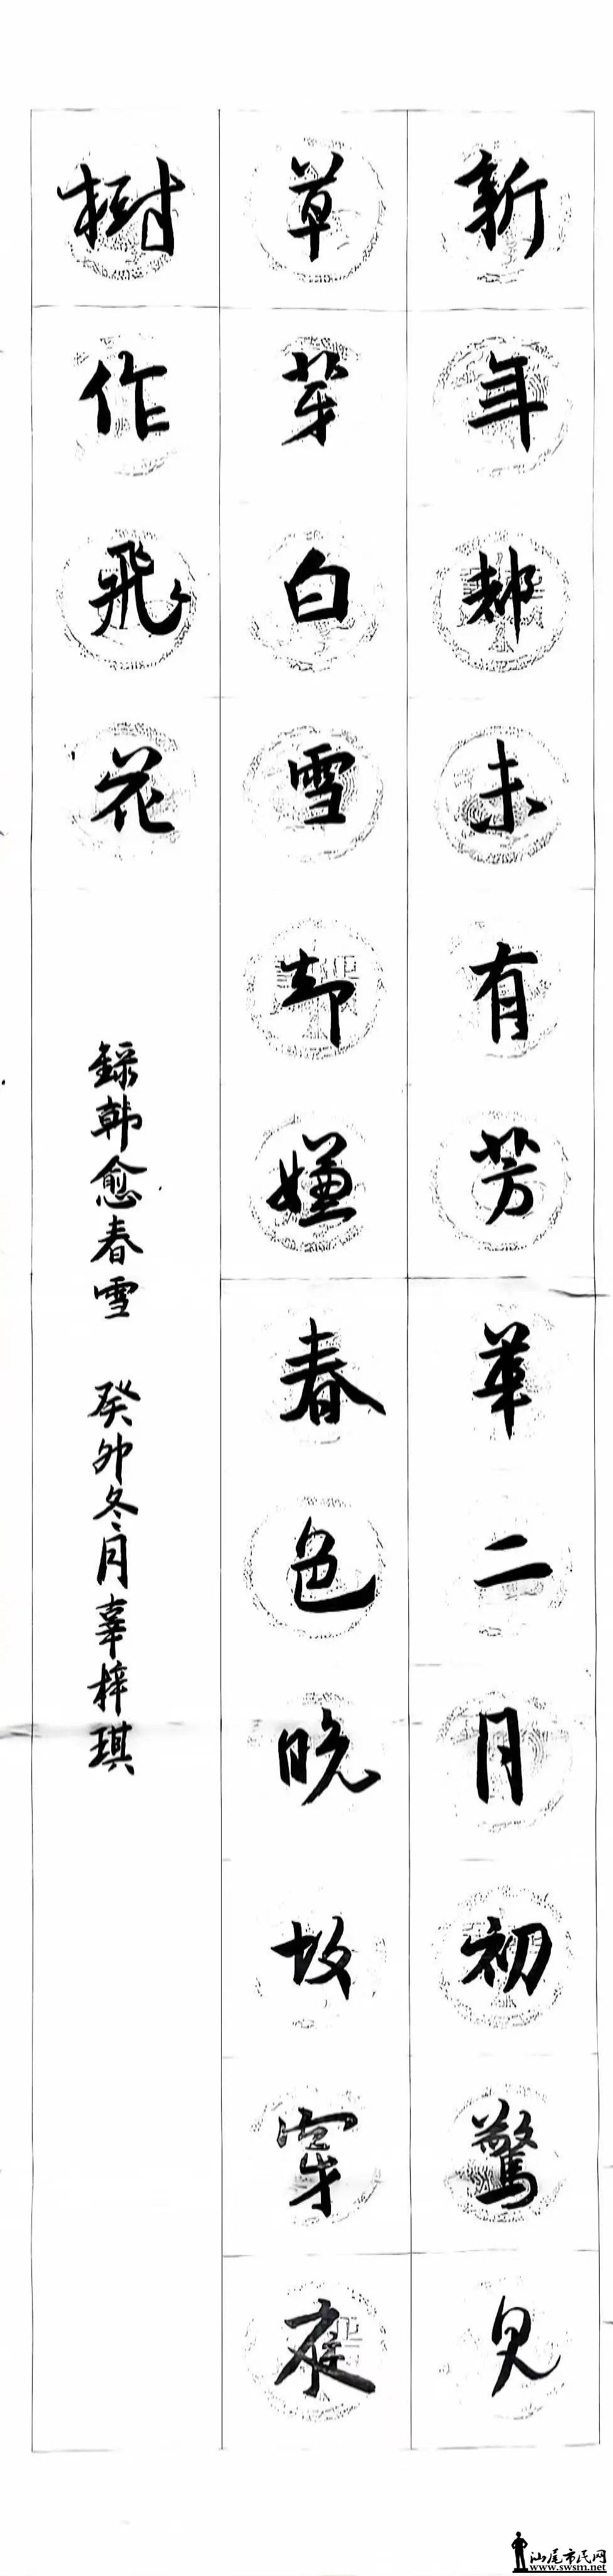 新年都未有芳華二月初驚見
草芽白雪却嫌春色晚故穿庭
樹作飛花
録韩愈春雪 癸卯冬月辜梓琪
汕尾市民网
www.swsm.net